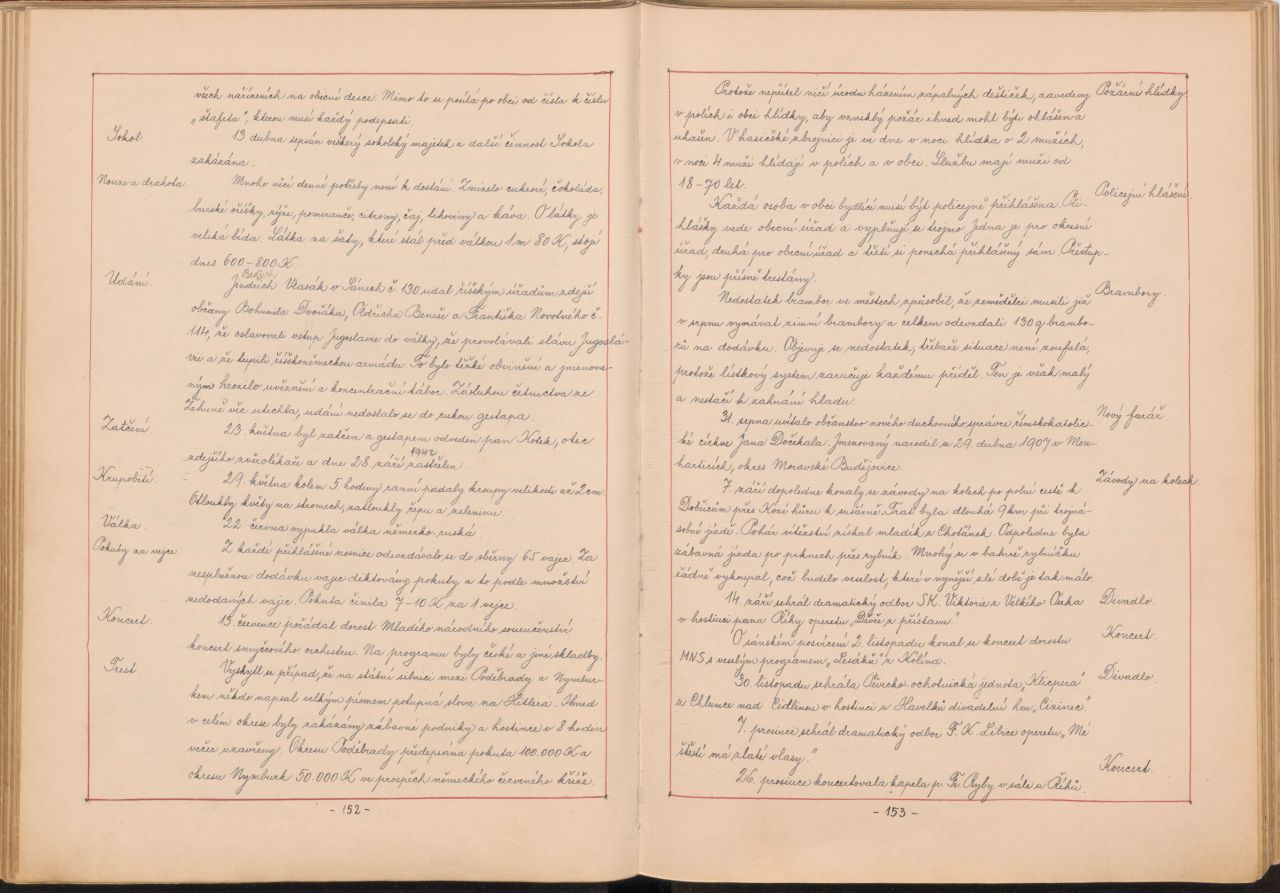 všech nařízeních na obecní desce. Mimo to se posílá po obci od čísla k číslu
„štafeta", kterou musí každý podepsati.
Sokol. 13 dubna sepsán veškerý sokolský majetek a další činnost Sokola
zakázána.
Nouze a drahota. Mnoho věcí denní potřeby není k dostání. Zmizelo cukroví, čokoláda,
burské oříšky, rýže, pomeranče, citrony, čaj, lihoviny a káva. O látky je
veliká bída. Látka na šaty, které stál před válkou 1 m 80 K, stojí
dnes 600-800 K.
Bedřich
Udání. Jindřich Vlasák v Sánech č. 130 udal říšským úřadům zdejší
občany Bohumila Dvořáka, Oldřicha Beneše a Františka Novotného č.
114, že oslavovali vstup Jugoslavie do války, že provolávali slávu Jugoslá-
vii a že tupili říšskoněmeckou armádu. To bylo těžké obvinění a jmenova-
ným hrozilo uvěznění a koncentrační tábor. Zásluhou četnictva ze
Žehuně věc utichla, udání nedostalo se do rukou gestapa.
Zatčení. 23. května byl zatčen a gestapem odveden pan Kotek, otec
zdejšího zvěrolékaře a dne 28 září 1942 zastřelen.
Krupobití. 29. května kolem 5 hodiny ranní padaly kroupy velikosti až 2 cm.
Otloukly květy na stromech, zatloukly řepu a zeleninu.
Válka. 22 června vypukla válka německo ruská.
Pokuty za vejce. Z každé přihlášené nosnice odevzdávalo se do sběrny 65 vajec. Za
nesplněnou dodávku vajec diktovány pokuty a to podle množství
nedodaných vajec. Pokuta činila 7-10 K za 1 vejce.
Koncert. 13. července pořádal dorost Mladého národního souručenství
koncert smyčcového orchestru. Na programu byly české a jiné skladby.
Trest. Vyskytl se případ, že na státní silnici mezi Poděbrady a Nymbur-
kem někdo napsal velkým písmem potupná slova na Hitlera. Ihned
v celém okrese byly zakázány zábavné podniky a hostince v 8 hodin
večer uzavřeny. Okresu Poděbrady předepsána pokuta 100.000 K a
okresu Nymburk 50.000 K ve prospěch německého červeného kříže.
- 152 -
Protože nepřítel ničí úrodu házením zápalných destiček, zavedeny Požární hlídky.
v polích i obci hlídky, aby vzniklý požár ihned mohl býti ohlášen a
uhašen. V hasičské zbrojnici je ve dne v noci hlídka o 2 mužích,
v noci 4 muži hlídají v polích a v obci. Službu mají muži od
18-70 let.
Policejní hlášení.
Každá osoba v obci bydlící musí být policejně přihlášena. Při-
hlášky vede obecní úřad a vyplňují se trojmo. Jedna je pro okresní
úřad, druhá pro obecní úřad a třetí si ponechá přihlášený sám. Přestup-
ky jsou přísně trestány.
Brambory.
Nedostatek brambor ve městech způsobil, že zemědělci musili již
v srpnu vyorávat zimní brambory a celkem odevzdali 130 q brambo-
rů na dodávku. Objevuje se nedostatek, třebaže situace není zoufalá,
protože lístkový system zaručuje každému příděl. Ten je však malý
a nestačí k zahnání hladu.
Nový farář.
31. srpna uvítalo občanstvo nového duchovního správce římskokatolic-
ké církve Jana Dočekala. Jmenovaný narodil se 29. dubna 1907 v Men-
harticích, okres Moravské Budějovice.
Závody na kolech.
7. září dopoledne konaly se závody na kolech po polní cestě k
Dobšicům přes Kozí hůru k sušárně. Trať byla dlouhá 9 km při trojná-
sobné jízdě. Pohár vítězství získal mladík z Choťánek. Odpoledne byla
zábavná jízda po prknech přes rybník. Mnohý se v bahně rybníčku
řádně vykoupal, což budilo veselost, které v nynější zlé době je tak málo.
14. září sehrál dramatický odbor SK. Viktorie z Velkého Oseka Divadlo.
v hostinci pana Říky operetu „Děvče z přístavu."
O sánském posvícení 2. listopadu konal se koncert dorostu Koncert.
MNS s veselým programem „Lesáků" z Kolína.
30. listopadu sehrála Pěvecko-ochotnická jednota „Klicpera" Divadlo.
z Chlumce nad Cidlinou v hostinci u Havelků divadelní hru „Cizinec".
7. prosince sehrál dramatický odbor F. K. Libice operetu „Mé
štěstí má zlaté vlasy."
26. prosince koncertovala kapela p. Fr. Ryby v sále u Říků. Koncert.
- 153 -